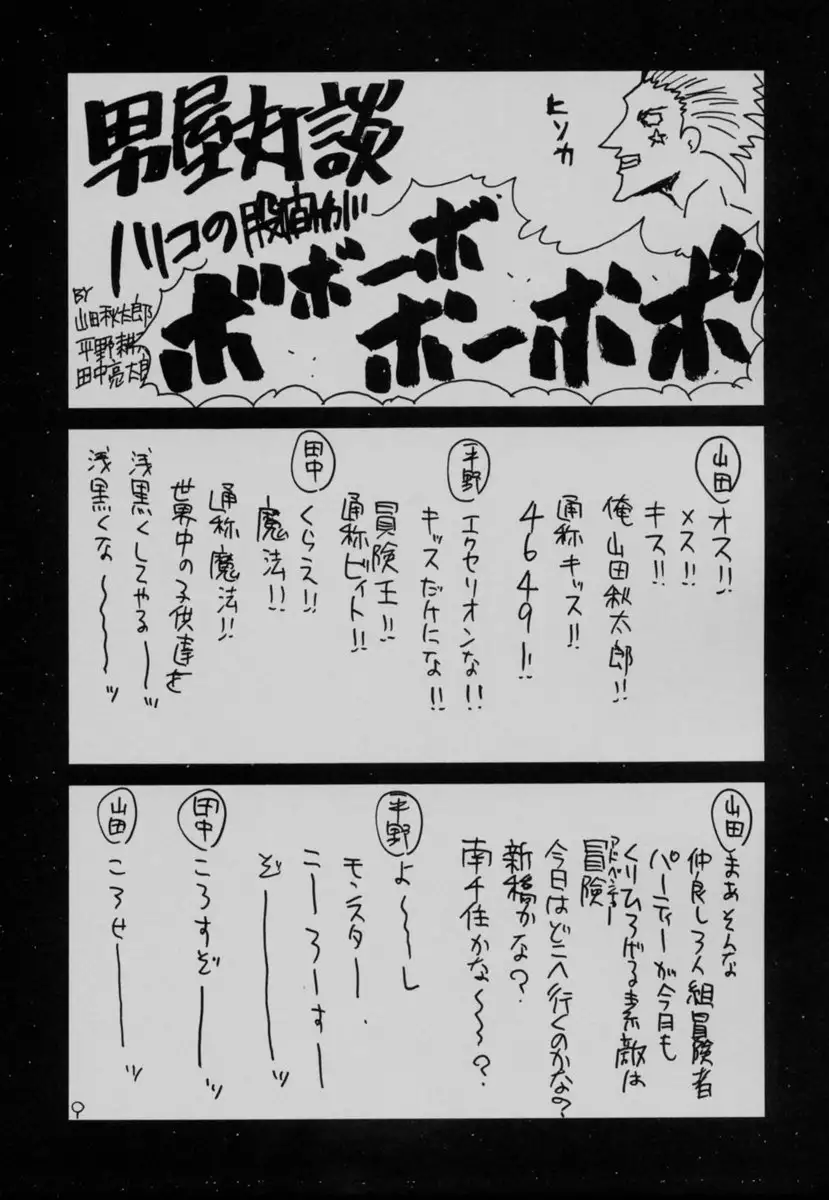 男屋対談
ハコの股間が
ボボボーボ
ボーボボ
ヒソカ
BY
山田秋太郎
平野耕太
田中亮太郎
山田 オス!!
メス!!
キス!!
俺山田秋太郎!!
通称キッス!!
4649!!
平野 エクセリオンな!!
キッスだけにな!!
冒険王!!
通称ビィト!!
田中 くらえ!!
魔法!!
通称魔法!!
世界中の子供達を
浅黒くしてやる〜ッ
浅黒くな〜〜〜〜ッ
山田 まあそんな
仲良し3人組冒険者
パーティーが今日も
くりひろげる素敵な
冒険
アドベンチャー
今日はどこへ行くのかな?
新橋かな?
南千住かな〜〜?
平野 よ〜〜し
モンスター
こーろーすー
ぞーーーッ
田中 ころすぞーーッ
山田 ころせーーーッ
9